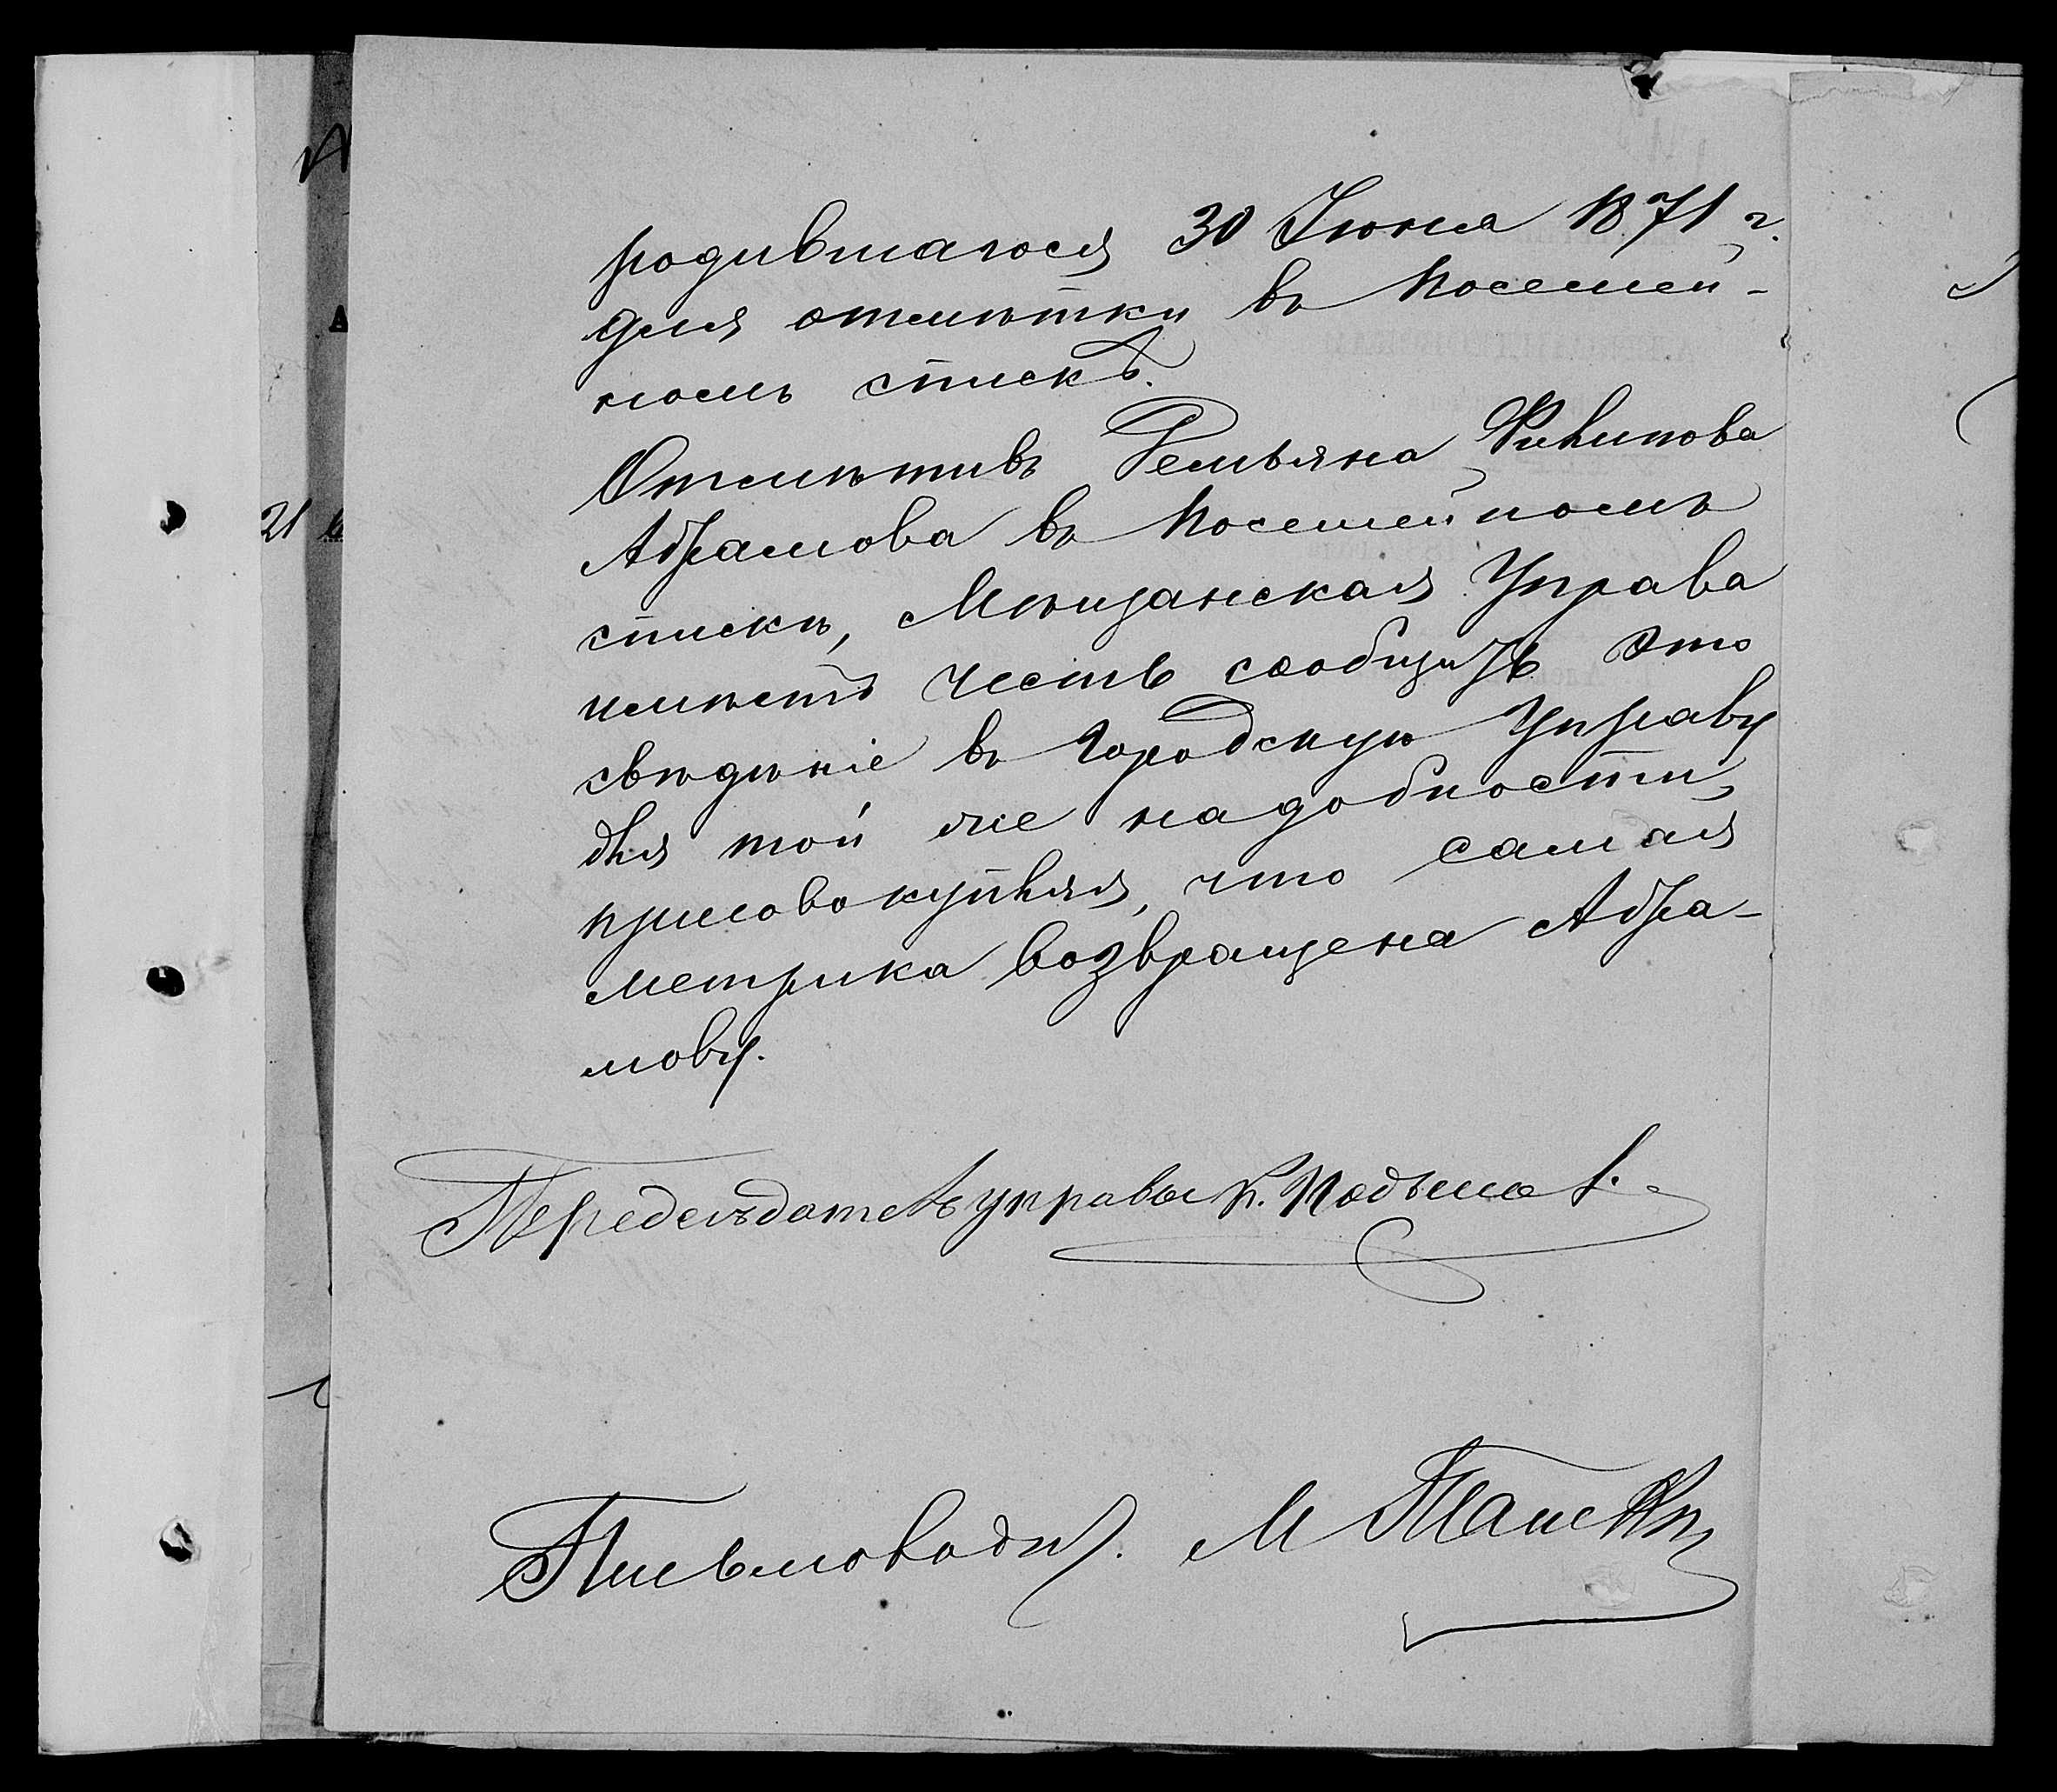 родившагося 30 Іюня 1871 г.
для отмѣтки въ посемей-
номъ спискѣ.
Отмѣтивъ Демьяна Филипова
Абрамова въ посемейномъ
спискѣ, Мѣщанская Управа
имѣетъ честь сообщить это
свѣдѣніе въ Городскую Управу
для той же надобности,
присовокупляя, что самая
метрика возвращена Абра-
мову.
управы
Письмовод.
21